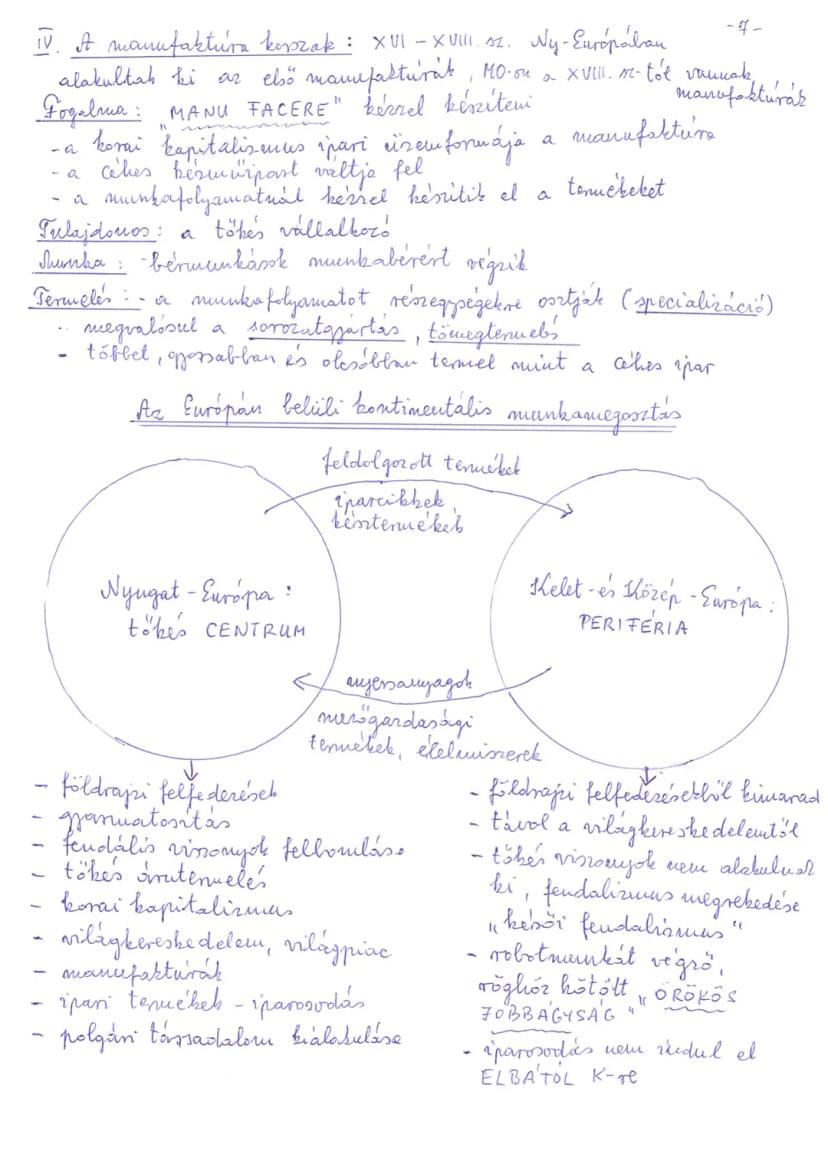 -7-
IV. A manufaktúra korszak: XVI-XVIII. sz. Ny-Európában
alakultak ki az első manufaktúrák, MO-on a XVIII. sz-tól vannak
manufaktúrák
Fogalma: "MANU FACERE" kézzel készíteni
- a korai kapitalizmus ipari üzemformája a manufaktúra
- a céhes kézműipart váltja fel
- a munkafolyamatnál kézzel készítik el a termékeket
Tulajdonos: a tőkés vállalkozó
Munka: - bérmunkások munkabérért végzik
Termelés: - a munkafolyamatot részegységekre osztják (specializáció)
- megvalósul a sorozatgyártás, tömegtermelés
- többet, gyorsabban és olcsóbban termel mint a céhes ipar
Az Európán belüli kontinentális munkamegosztás
feldolgozott termékek
iparcikkek,
késztermékek
Nyugat-Európa:
tőkés CENTRUM
Kelet-és Közép-Európa:
PERIFÉRIA
nyersanyagok
mezőgazdasági
termékek, élelmiszerek
- földrajzi felfedezések
- gyarmatosítás
- feudális viszonyok felbomlása
- tőkés árutermelés
- korai kapitalizmus
- világkereskedelem, világpiac
- manufaktúrák
- ipari termékek - iparosodás
- polgári társadalom kialakulása
- földrajzi felfedezésekből kimarad
- távol a világkereskedelemtől
- tőkés viszonyok nem alakulnak
ki, feudalizmus megrekedése
"késői feudalizmus"
- robotmunkát végző,
röghöz kötött "ÖRÖKÖS
JOBBÁGYSÁG"
- iparosodás nem indul el
ELBÁTÓL K-re